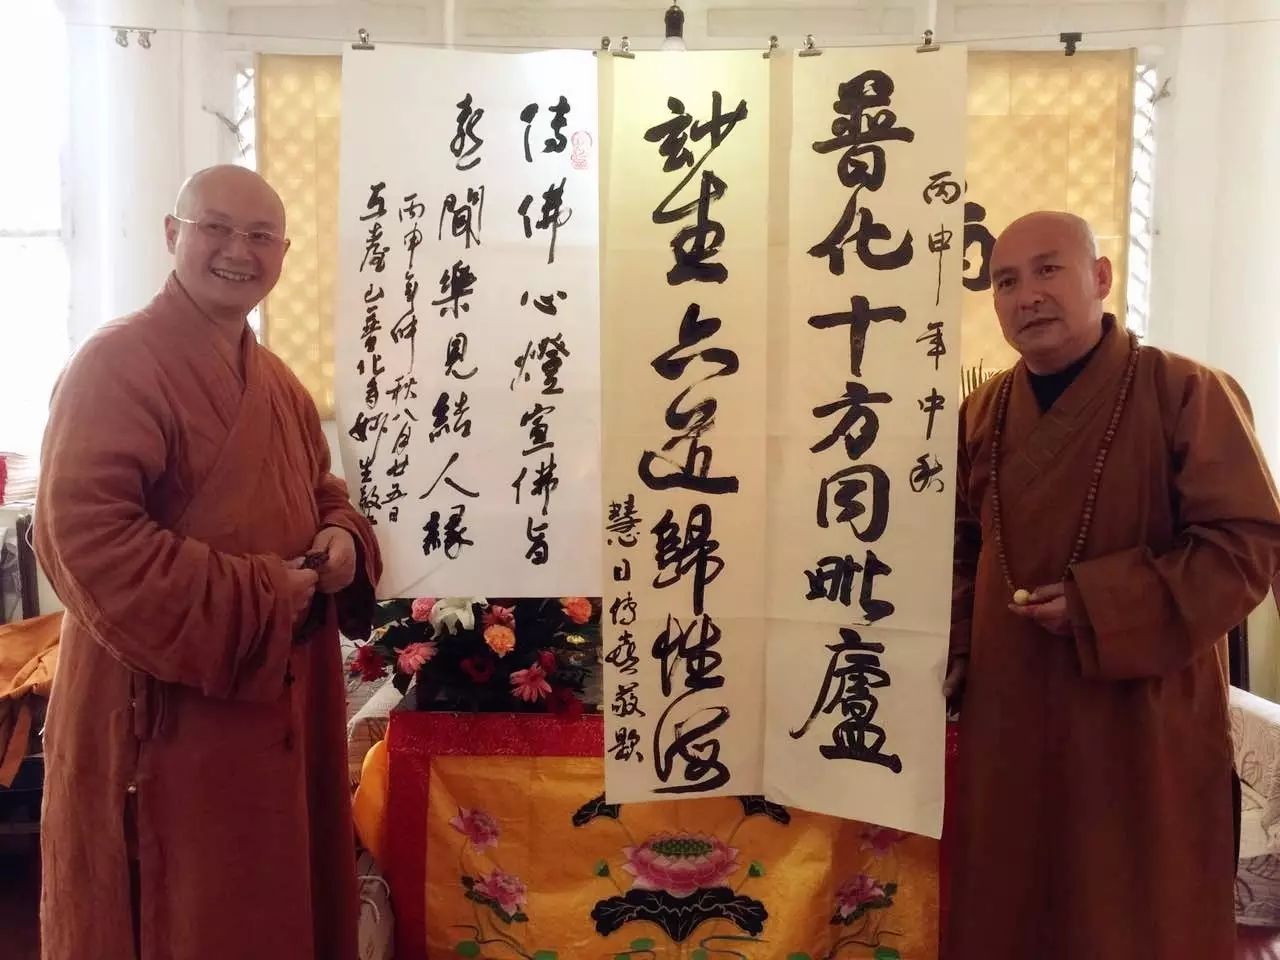 丙申年中秋
普化十方同毗盧
玅生六道歸性海
慧日傳敬題
傳佛心燈宣佛旨
喜聞樂見結人緣
丙申年仲秋八月廿五日
五臺山普化寺妙生敬